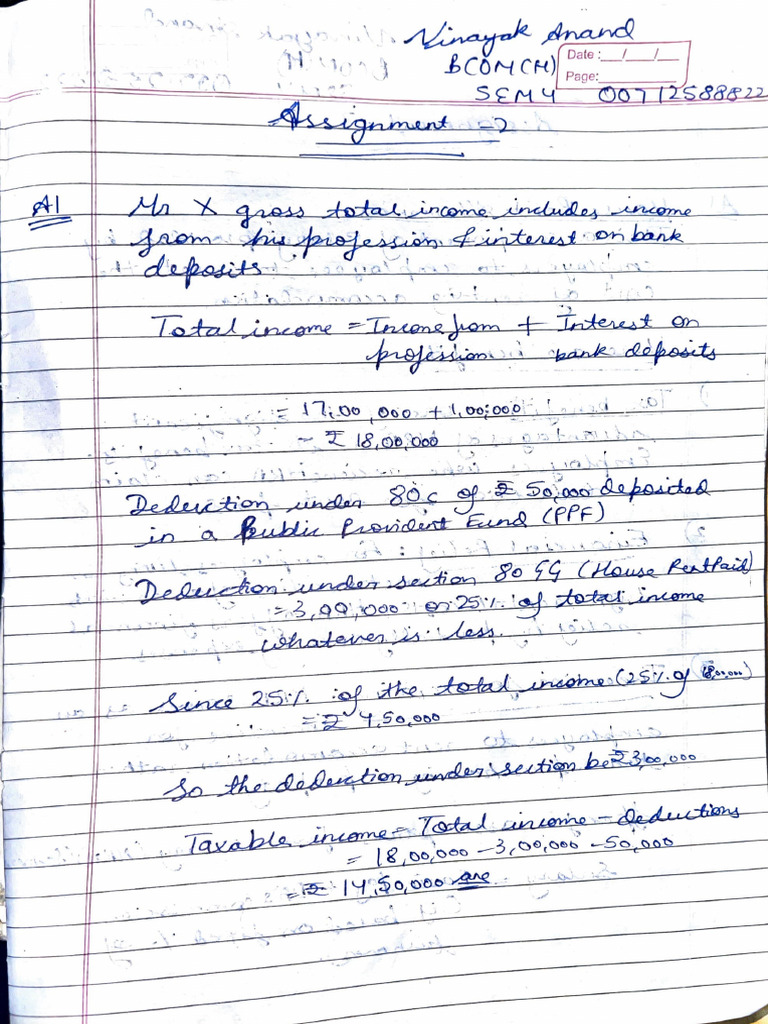 Vinayak Anand
BCOM(H)
Date :__/__/__
Page:
SEM 4 00712588822
Assignment -2
A1 Mr X gross total income includes income
from his profession & interest on bank
deposits
Total income = Income from + Interest on
profession bank deposits
= 17,00,000 + 1,00,000
= ₹ 18,00,000
Deduction under 80c of ₹ 50,000 deposited
in a Public Provident Fund (PPF)
Deduction under section 80GG (House Rent Paid)
= 3,00,000 or 25% of total income
whatever is less.
Since 25% of the total income (25% of 18,00,000)
= ₹ 4,50,000
So the deduction under section be ₹3,00,000
Taxable income = Total income - deductions
= 18,00,000 - 3,00,000 - 50,000
= ₹ 14,50,000 are